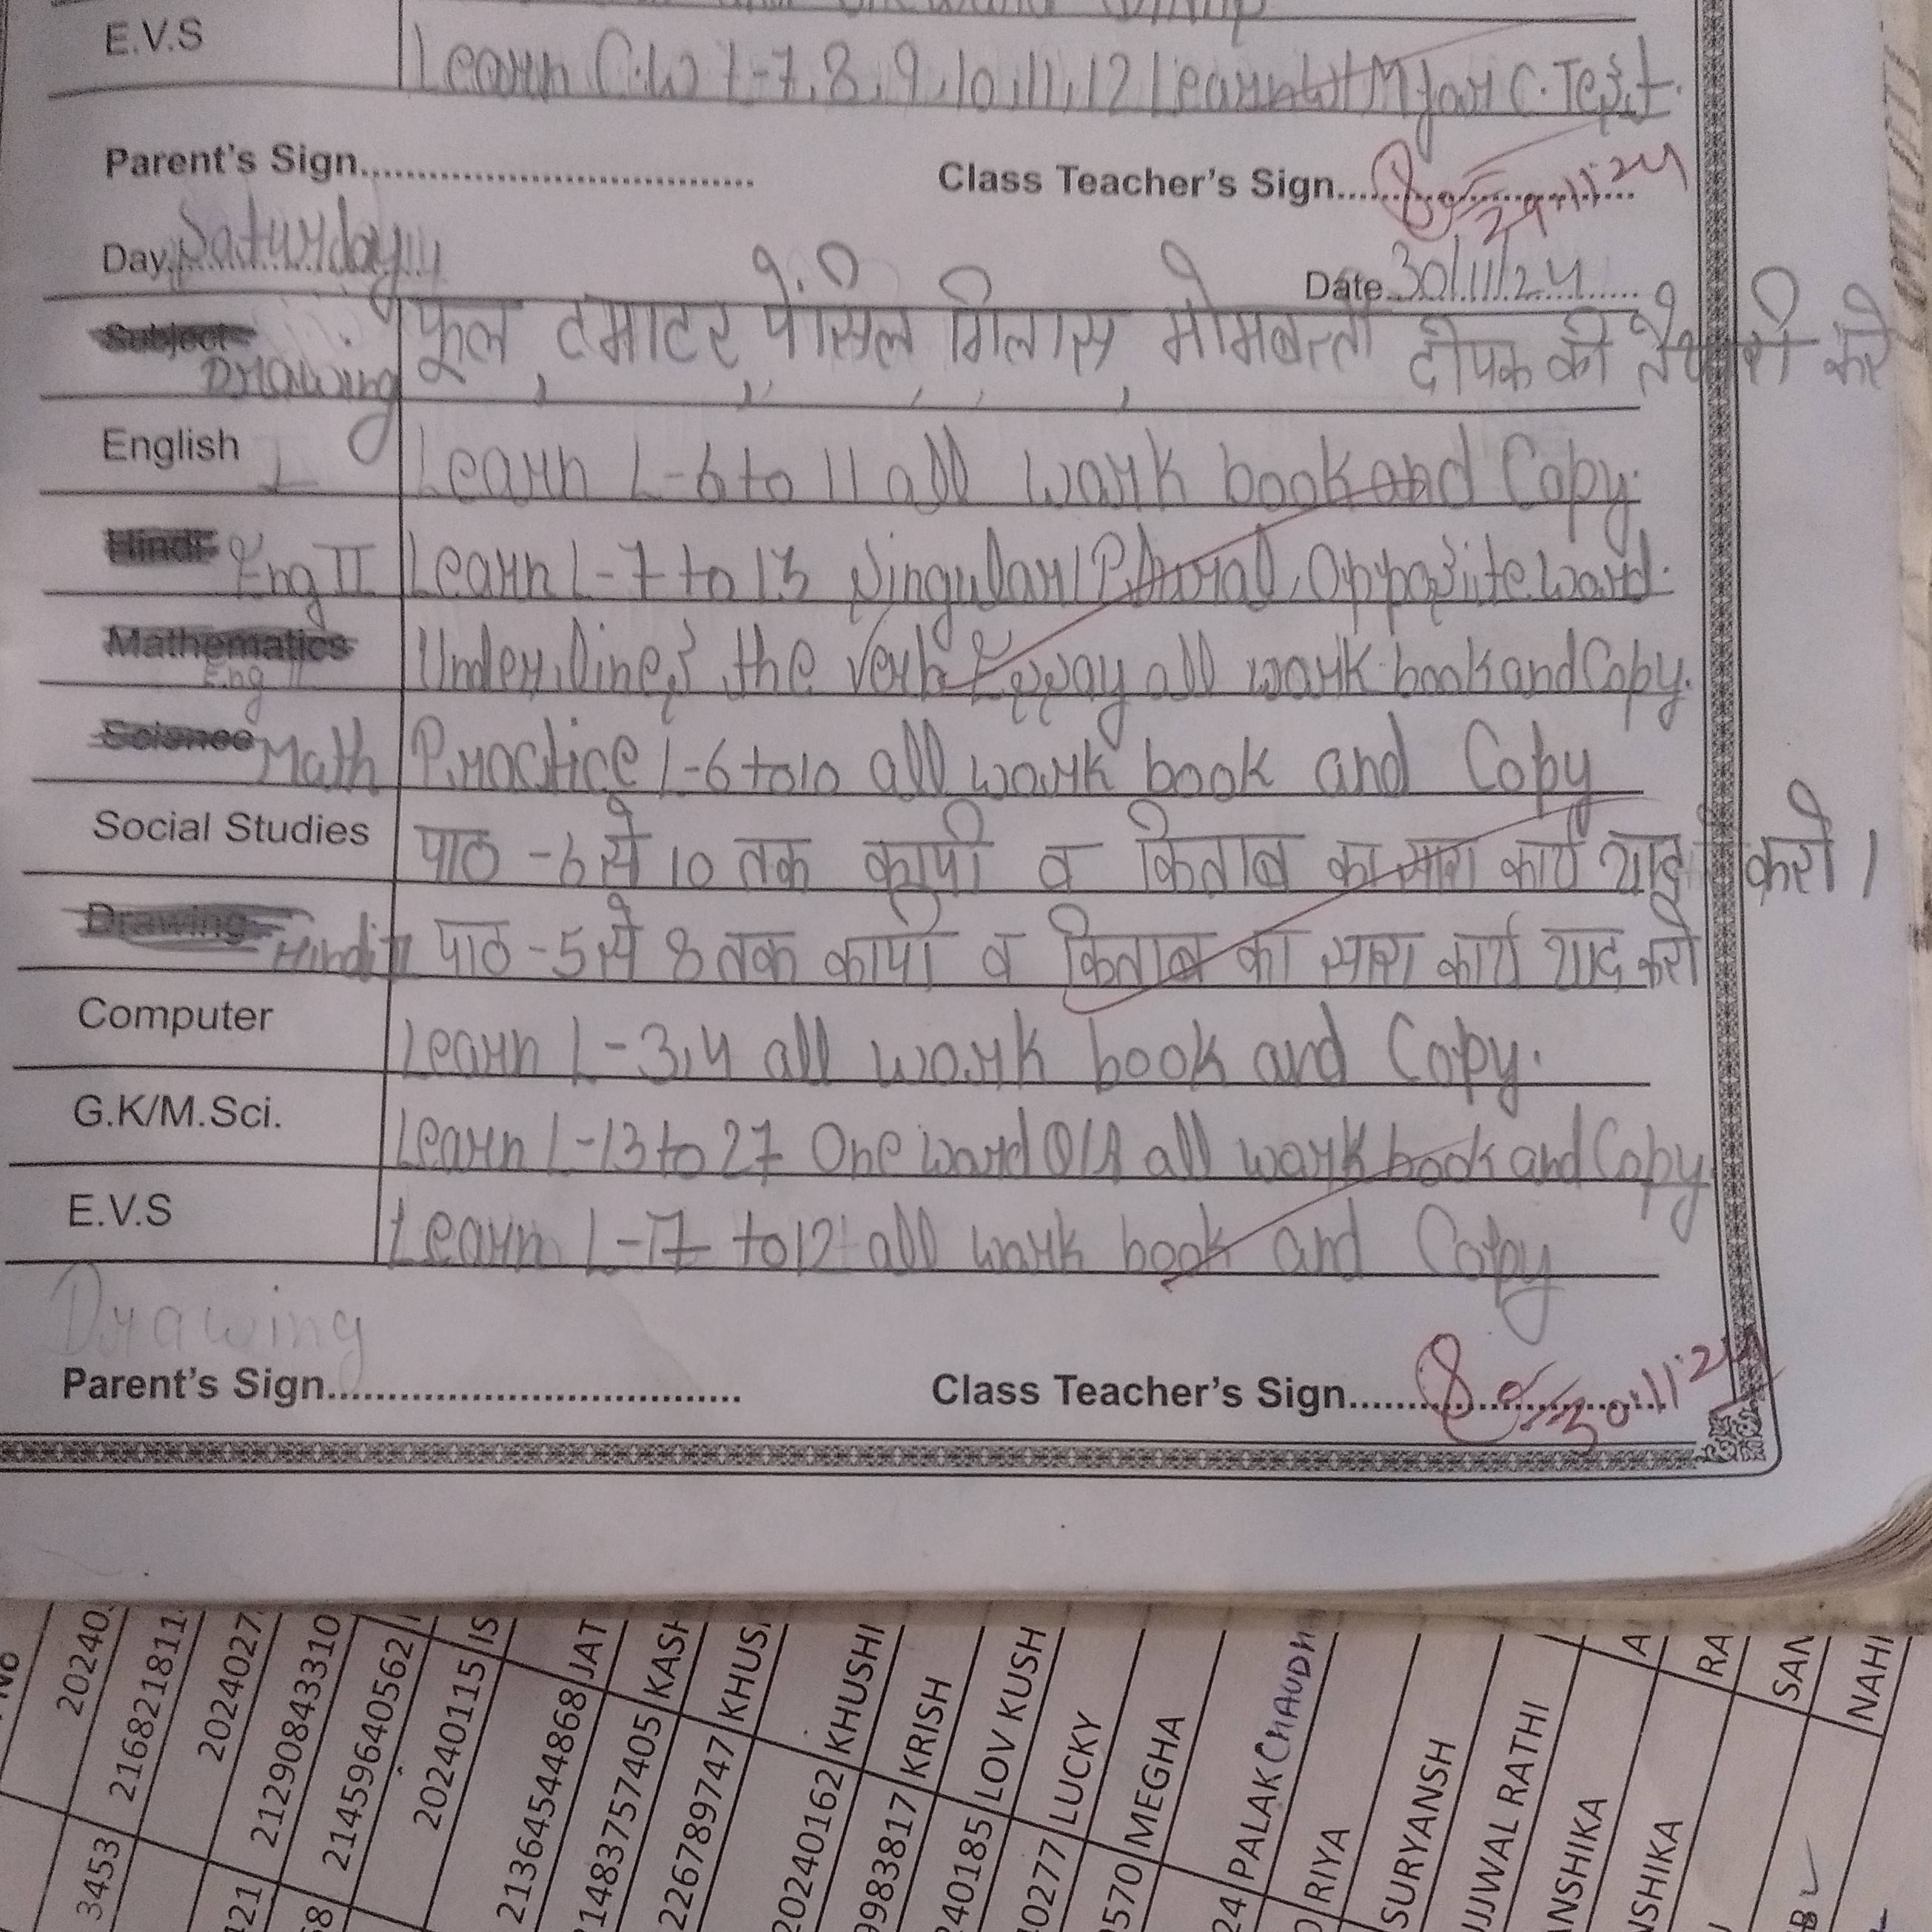 E.V.S Learn C.W L-7, 8, 9, 10, 11, 12 Learn W/M for C. Test.
Parent's Sign.................................... Class Teacher's Sign.......... 29.11.24
Day Saturday Date 30/11/24
Subject Drawing फूल, टमाटर, पेंसिल, गिलास, मोमबत्ती दीपक की तैयारी करे
English I Learn L-6 to 11 all work book and Copy.
Hindi Eng II Learn L-7 to 13 Singular/Plural, Opposite word.
Mathematics Eng II Underlines the verb Essay all work book and Copy.
Science Math Practice L-6 to 10 all work book and Copy
Social Studies पाठ -6 से 10 तक कापी व किताब का सारा कार्य याद करो।
Drawing Hindi II पाठ -5 से 8 तक कापी व किताब का सारा कार्य याद करो
Computer Learn L-3,4 all work book and Copy.
G.K/M.Sci. Learn L-13 to 27 One word Q/A all work book and Copy
E.V.S Learn L-7 to 12 all work book and Copy
Drawing
Parent's Sign.................................... Class Teacher's Sign.......... 30.11.24
No
20240
3453 216821811
421 2024027
21290843310
21459640562
20240115 IS
21364544868 JAT
KASH
KHUS
20240162 KHUSHI
9983817 KRISH
240185 LOV KUSH
40277 LUCKY
5570 MEGHA
24 PALAK CHAUDH
RIYA
SURYANSH
UJJWAL RATHI
ANSHIKA
NSHIKA
RA
SAN
NAHI